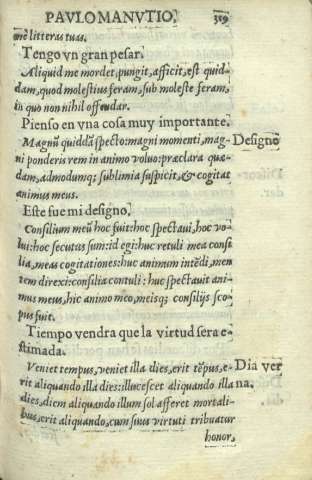 PAVLO MANVTIO, 319
mè litteras tuas.
Tengo vn gran pesar.
Aliquid me mordet, pungit, afficit, est quid-
dam, quod molestius feram, sub moleste feram,
in quo non nihil offendar.
Pienso en vna cosa muy importante.
Magnũ quiddã specto: magni momenti, mag- Designo
ni ponderis rem in animo voluo: præclara quæ-
dam, admodumq; sublimia suspicit, & cogitat
animus meus.
Este fue mi designo.
Consilium meũ hoc fuit: hoc spectaui, hoc vo-
lui: hoc secutus sum: id egi: huc retuli mea consi-
lia, meas cogitationes: huc animum intẽdi, men-
tem direxi: consilia contuli: huc spectauit ani-
mus meus, hic animo meo, meisq; consilijs sco-
pus fuit.
Tiempo vendra que la virtud sera e-
stimada.
Veniet tempus, veniet illa dies, erit tẽpus, e- Dia ver
rit aliquando illa dies: illucescet aliquando illa na.
dies, diem aliquando illum sol afferet mortali-
bus, erit aliquando, cum suus virtuti tribuatur
honor,